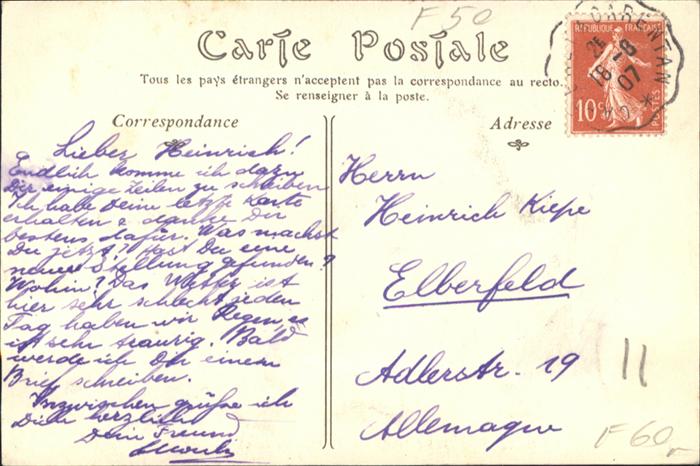 F 50
Carte Postale
Tous les pays étrangers n'acceptent pas la correspondance au recto.
Se renseigner à la poste.
Correspondance
Lieber Heinrich!
Endlich komme ich dazu
Dir einige Zeilen zu schreiben
Ich habe Deine letzte Karte
erhalten & danke Dir
bestens dafür. Was machst
Du jetzt? Hast Du eine
neue Stellung gefunden?
Wohin? Das Wetter ist
hier sehr schlecht jeden
Tag haben wir Regen, es
ist sehr traurig. Bald
werde ich Dir einen
Brief schreiben.
Inzwischen grüße ich
Dich herzlichst
Dein Freund
Adresse
Herrn
Heinrich Kiepe
Elberfeld
Adlerstr. 19
Allemagne
11
F 60
REPUBLIQUE FRANÇAISE
10c
POSTES
CARENTAN
18-8
07